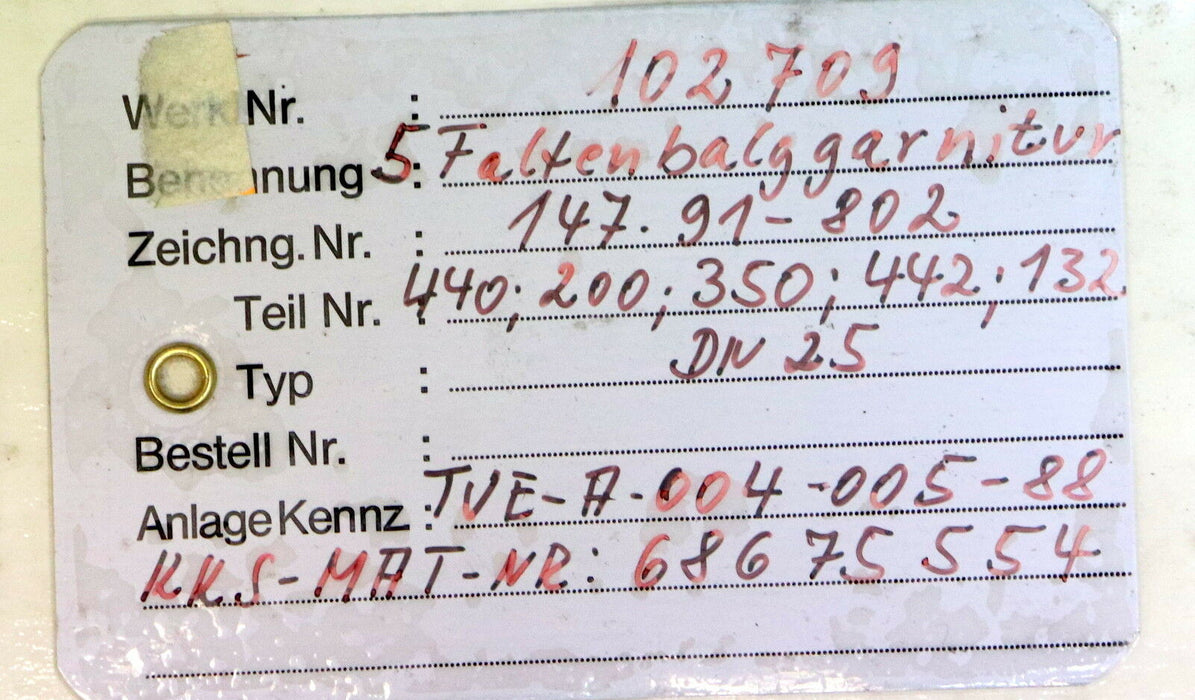 Werk Nr. : 102709
Benennung : 5 Faltenbalggarnitur
Zeichng. Nr. : 147.91-802
Teil Nr. : 440; 200; 350; 442; 132
Typ : DN 25
Bestell Nr. :
Anlage Kennz : TVE-A-004-005-88
KKS-MAT-NR: 68675554